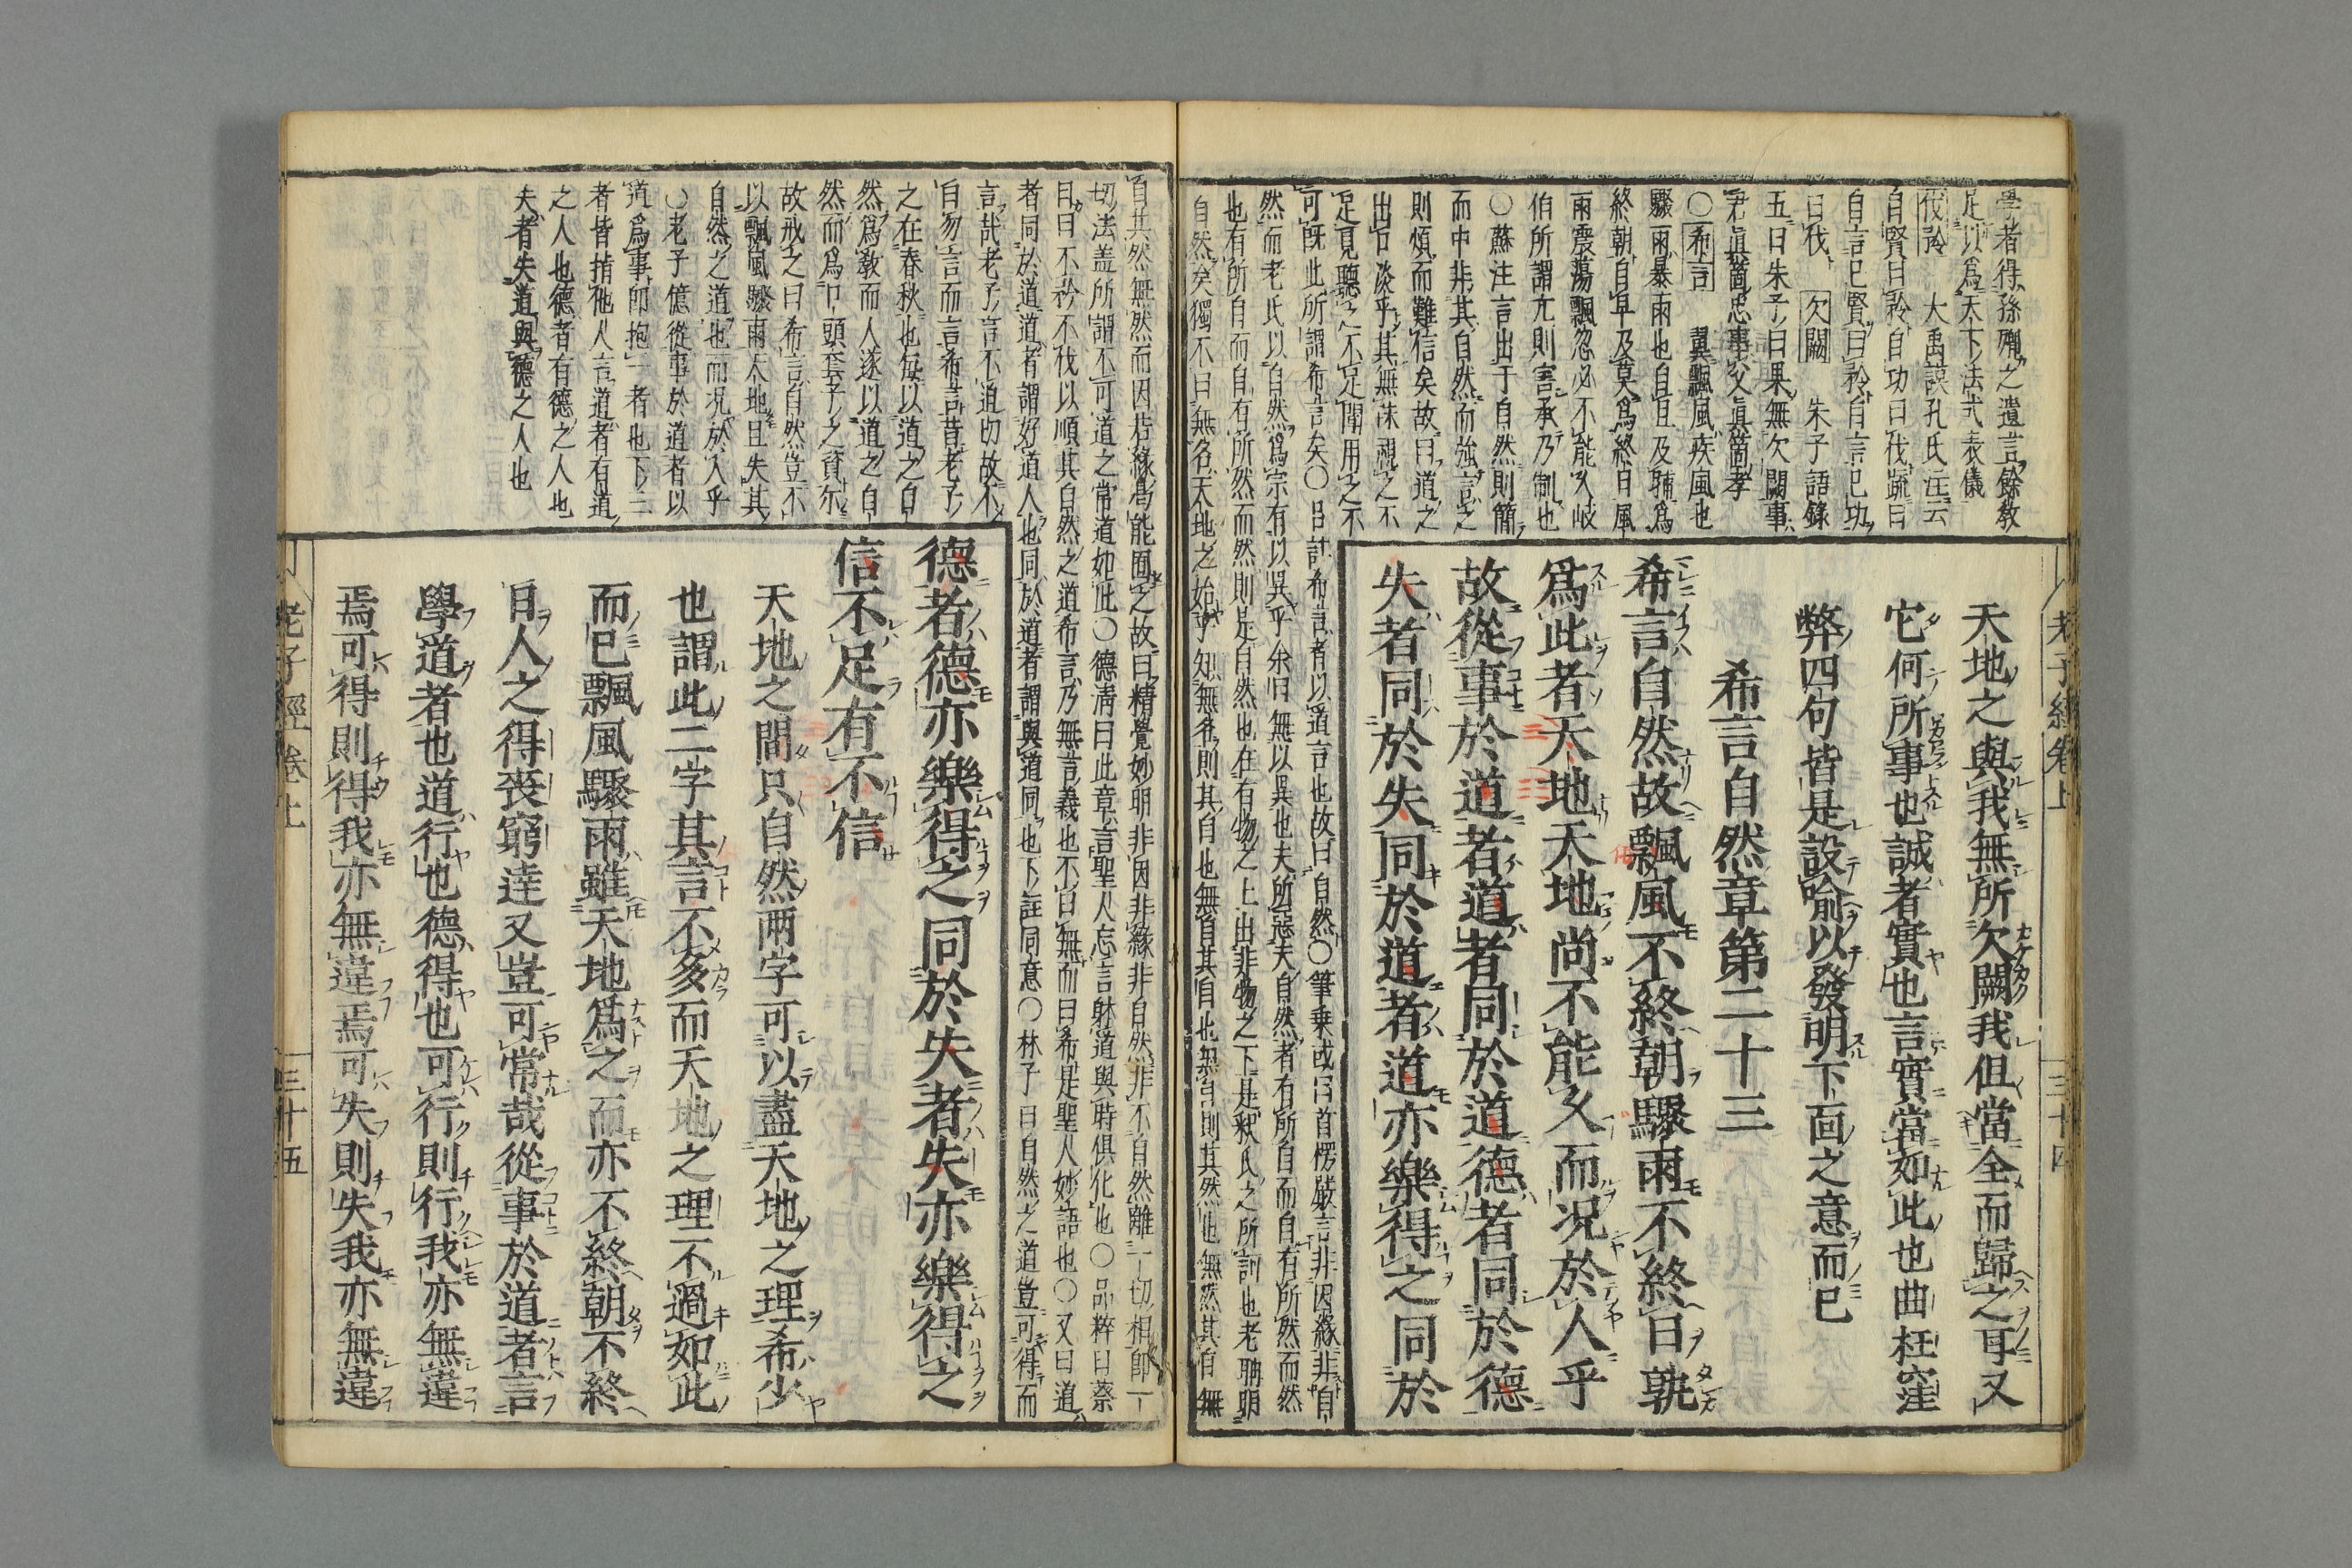 學者得孫殫之遺言餘教
足以爲天下法式表儀
伐矜　大禹謨孔氏注云
自賢曰矜自功曰伐疏曰
自言己賢曰矜自言己功
曰伐　欠闕　朱子語錄
五曰朱子曰果無欠闕事
君眞箇忠事父眞箇孝
〇希言　翼飄風疾風也
驟雨暴雨也自旦及晡爲
終朝自早及莫爲終日風
雨震蕩飄忽必不能久岐
伯所謂亢則害承乃制也
〇蘇注言出于自然則簡
而中非其自然而強言之
則煩而難信矣故曰道之
出口淡乎其無味視之不
足見聽之不足聞用之不
可旣此所謂希言矣〇呂註希言者以道言也故曰自然〇筆乗或曰首楞嚴言非因緣非自
然而老氏以自然爲宗有以異乎余曰無以異也夫所惡夫自然者有所自而自有所然而然
也有所自而自有所然而然則是自然也在有物之上出非物之下是釈氏之所訶也老聃明
自然矣獨不曰無名天地之始乎知無名則其自也無自其自也無自則其然也無然其自無
天地之與我無所欠闕我但當全而歸之耳又
它何所事也誠者實也言實當如此也曲枉窪
弊四句皆是設喩以發明下面之意而已
希言自然章第二十三
希言自然故飄風不終朝驟雨不終日孰
爲此者天地天地尚不能久而況於人乎
故從事於道者道者同於道德者同於德
失者同於失同於道者道亦樂得之同於
老子經卷上
三十四
自其然無然而因若緣曷能囿之故曰精覺妙明非因非緣非自然非不自然離一切相即一
切法盖所謂不可道之常道如此〇德淸曰此章言聖人忘言躰道與時俱化也〇品粹曰蔡
曰曰不矜不伐以順其自然之道希言乃無言義也不曰無而曰希是聖人妙語也〇又曰道
者同於道道者謂好道人也同於道者謂與道同也下註同意〇林子曰自然之道豈可得而
言哉老子言不道切故不
自勿言而言希言昔老子
之在春秋也每以道之自
然爲敎而人遂以道之自
然而爲口頭套子之資尓
故戒之曰希言自然豈不
以飄風驟雨天地且失其
自然之道也而况於人乎
〇老子億從事於道者以
道爲事即抱一者也下三
者皆指他人言道者有道
之人也德者有德之人也
夫者失道與德之人也
德者德亦樂得之同於失者失亦樂得之
信不足有不信
天地之間只自然兩字可以盡天地之理希少
也謂此二字其言不多而天地之理不過如此
而已飄風驟雨雖天地爲之而亦不終朝不終
日人之得喪窮達又豈可常哉從事於道者言
學道者也道行也德得也可行則行我亦無違
焉可得則得我亦無違焉可失則失我亦無違
老子經卷上
三十五